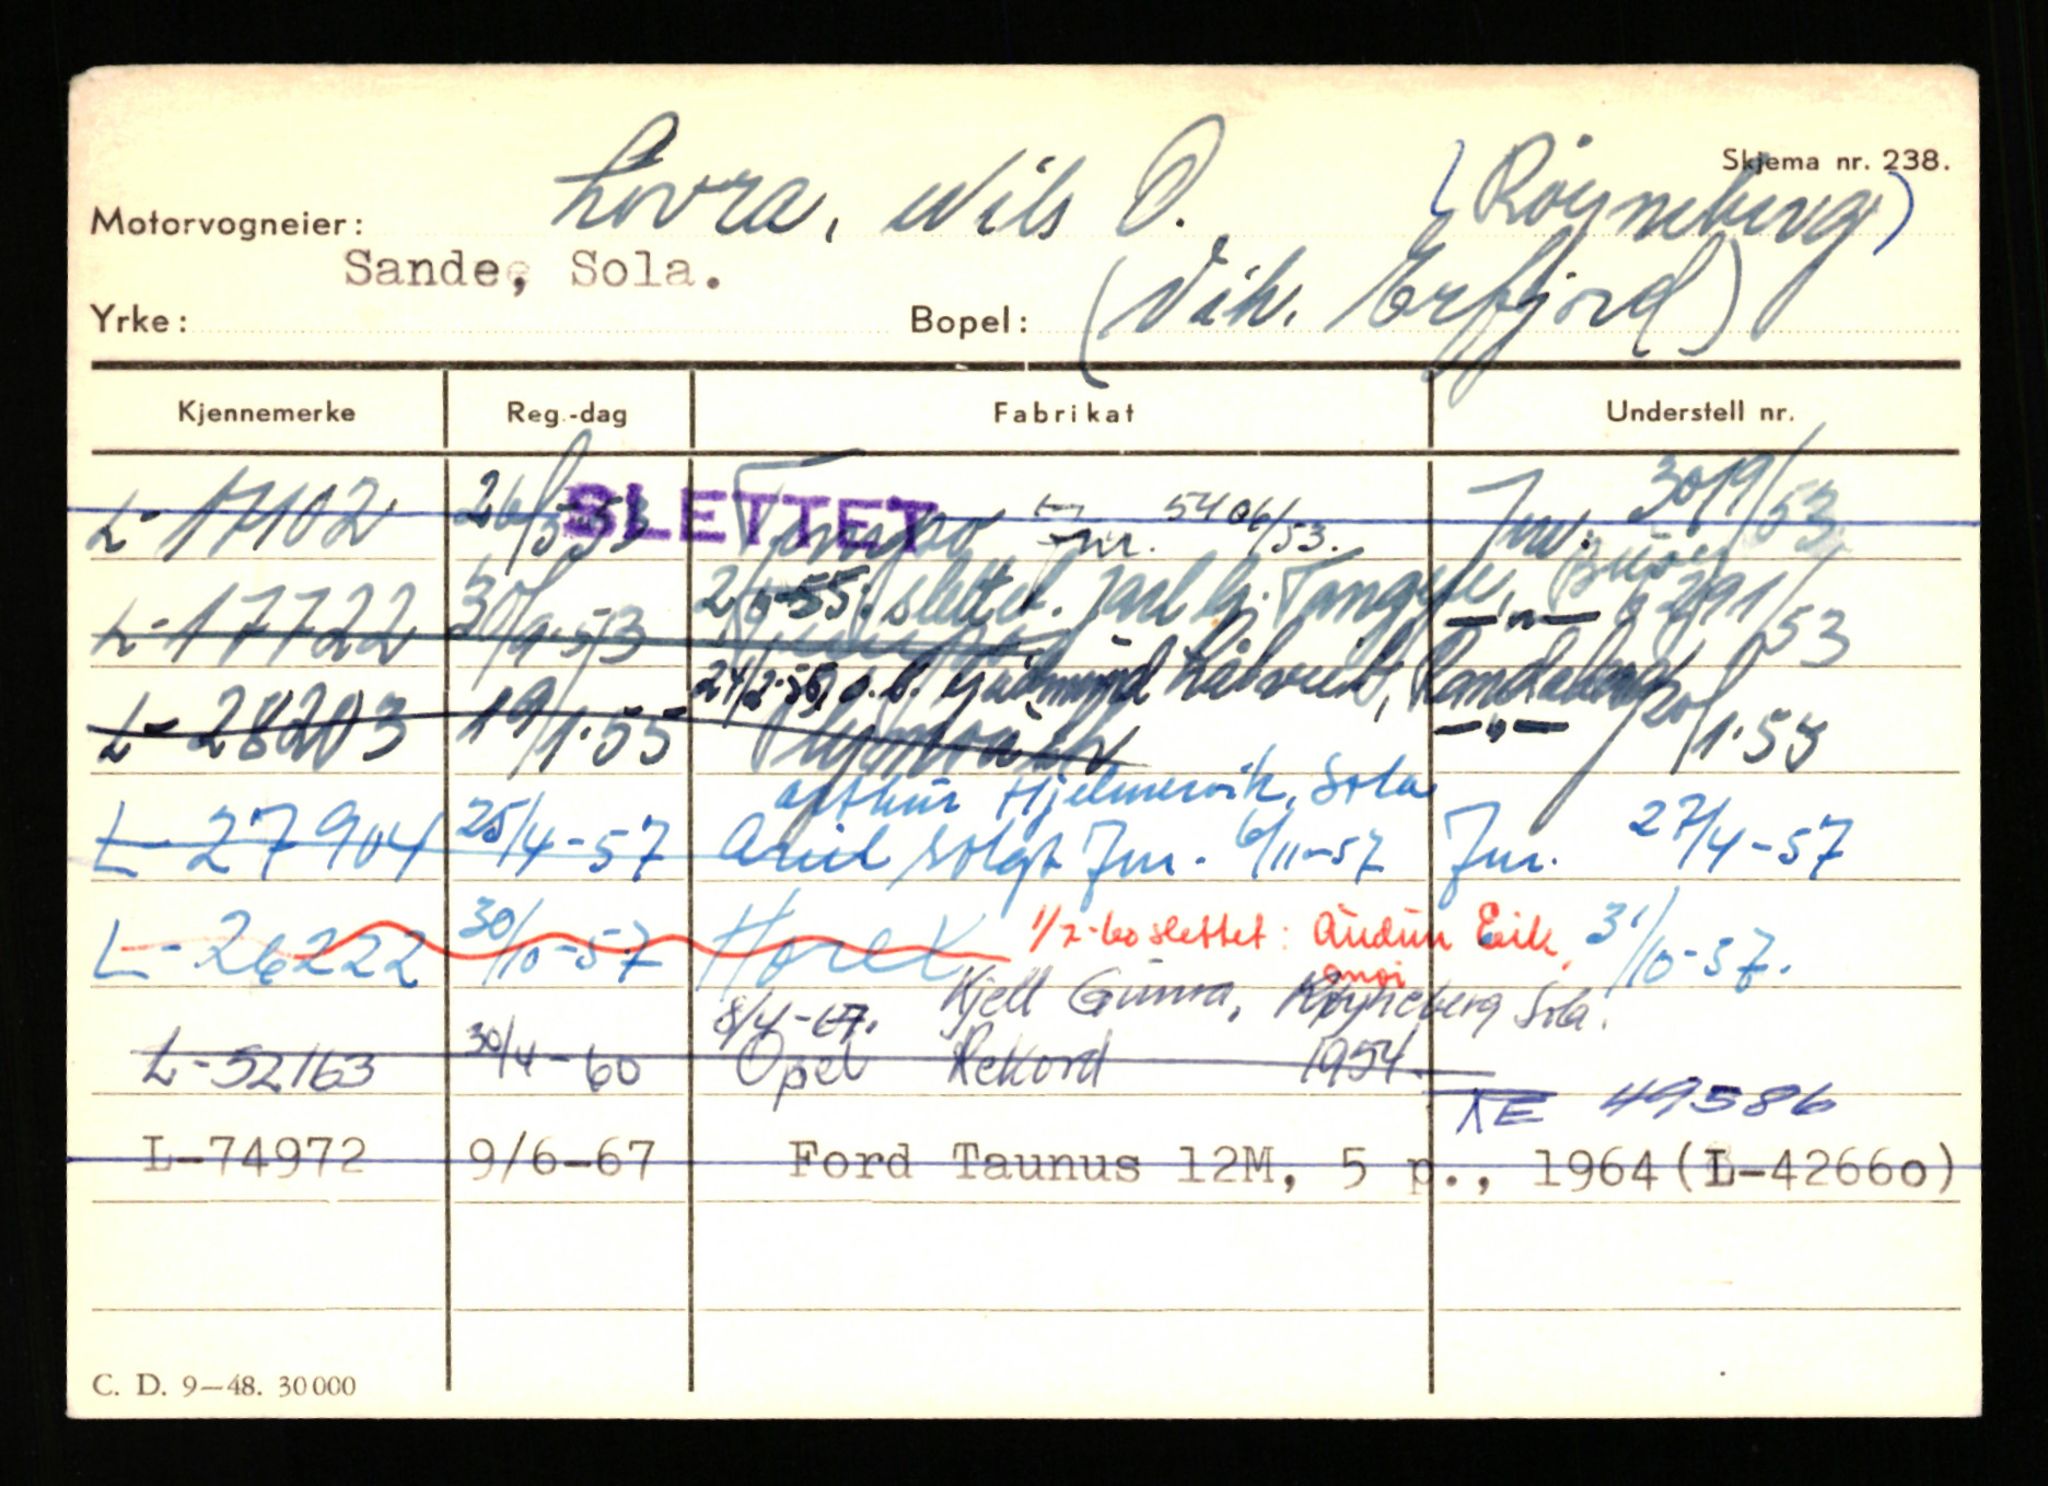 Skjema nr. 238.
Motorvogneier: Lovra, Nils O. (Røyneberg)
Sande, Sola. (Vih. Erfjord)
Yrke: Bopel:
Kjennemerke Reg.-dag Fabrikat Understell nr.
L-17102 26/5-53 SLETTET Tempo Jnr. 5406/53. Jnr. 3019/53
2/5-55. slettet. Jarl Tangen,
L-17722 30/9-53 Tempo —"— 6291/53
24/2-56, o.b. Gudmund Randaberg
L-28203 19/1-55 Plymouth —"— 20/1-55
Arthur Hjelmervik, Sola
L-27904 25/4-57 Ariel solgt Jnr. 6/11-57 Jnr. 27/4-57
L-26222 30/10-57 Horex 1/2-60 slettet: Audun Eik, 31/10-57.
8/4-67. Kjell Gunnar, Røyneberg Sola.
L-52163 30/4-60 Opel Rekord 1954.
KE 49586
L-74972 9/6-67 Ford Taunus 12M, 5 p., 1964(L-42660)
C. D. 9—48. 30000